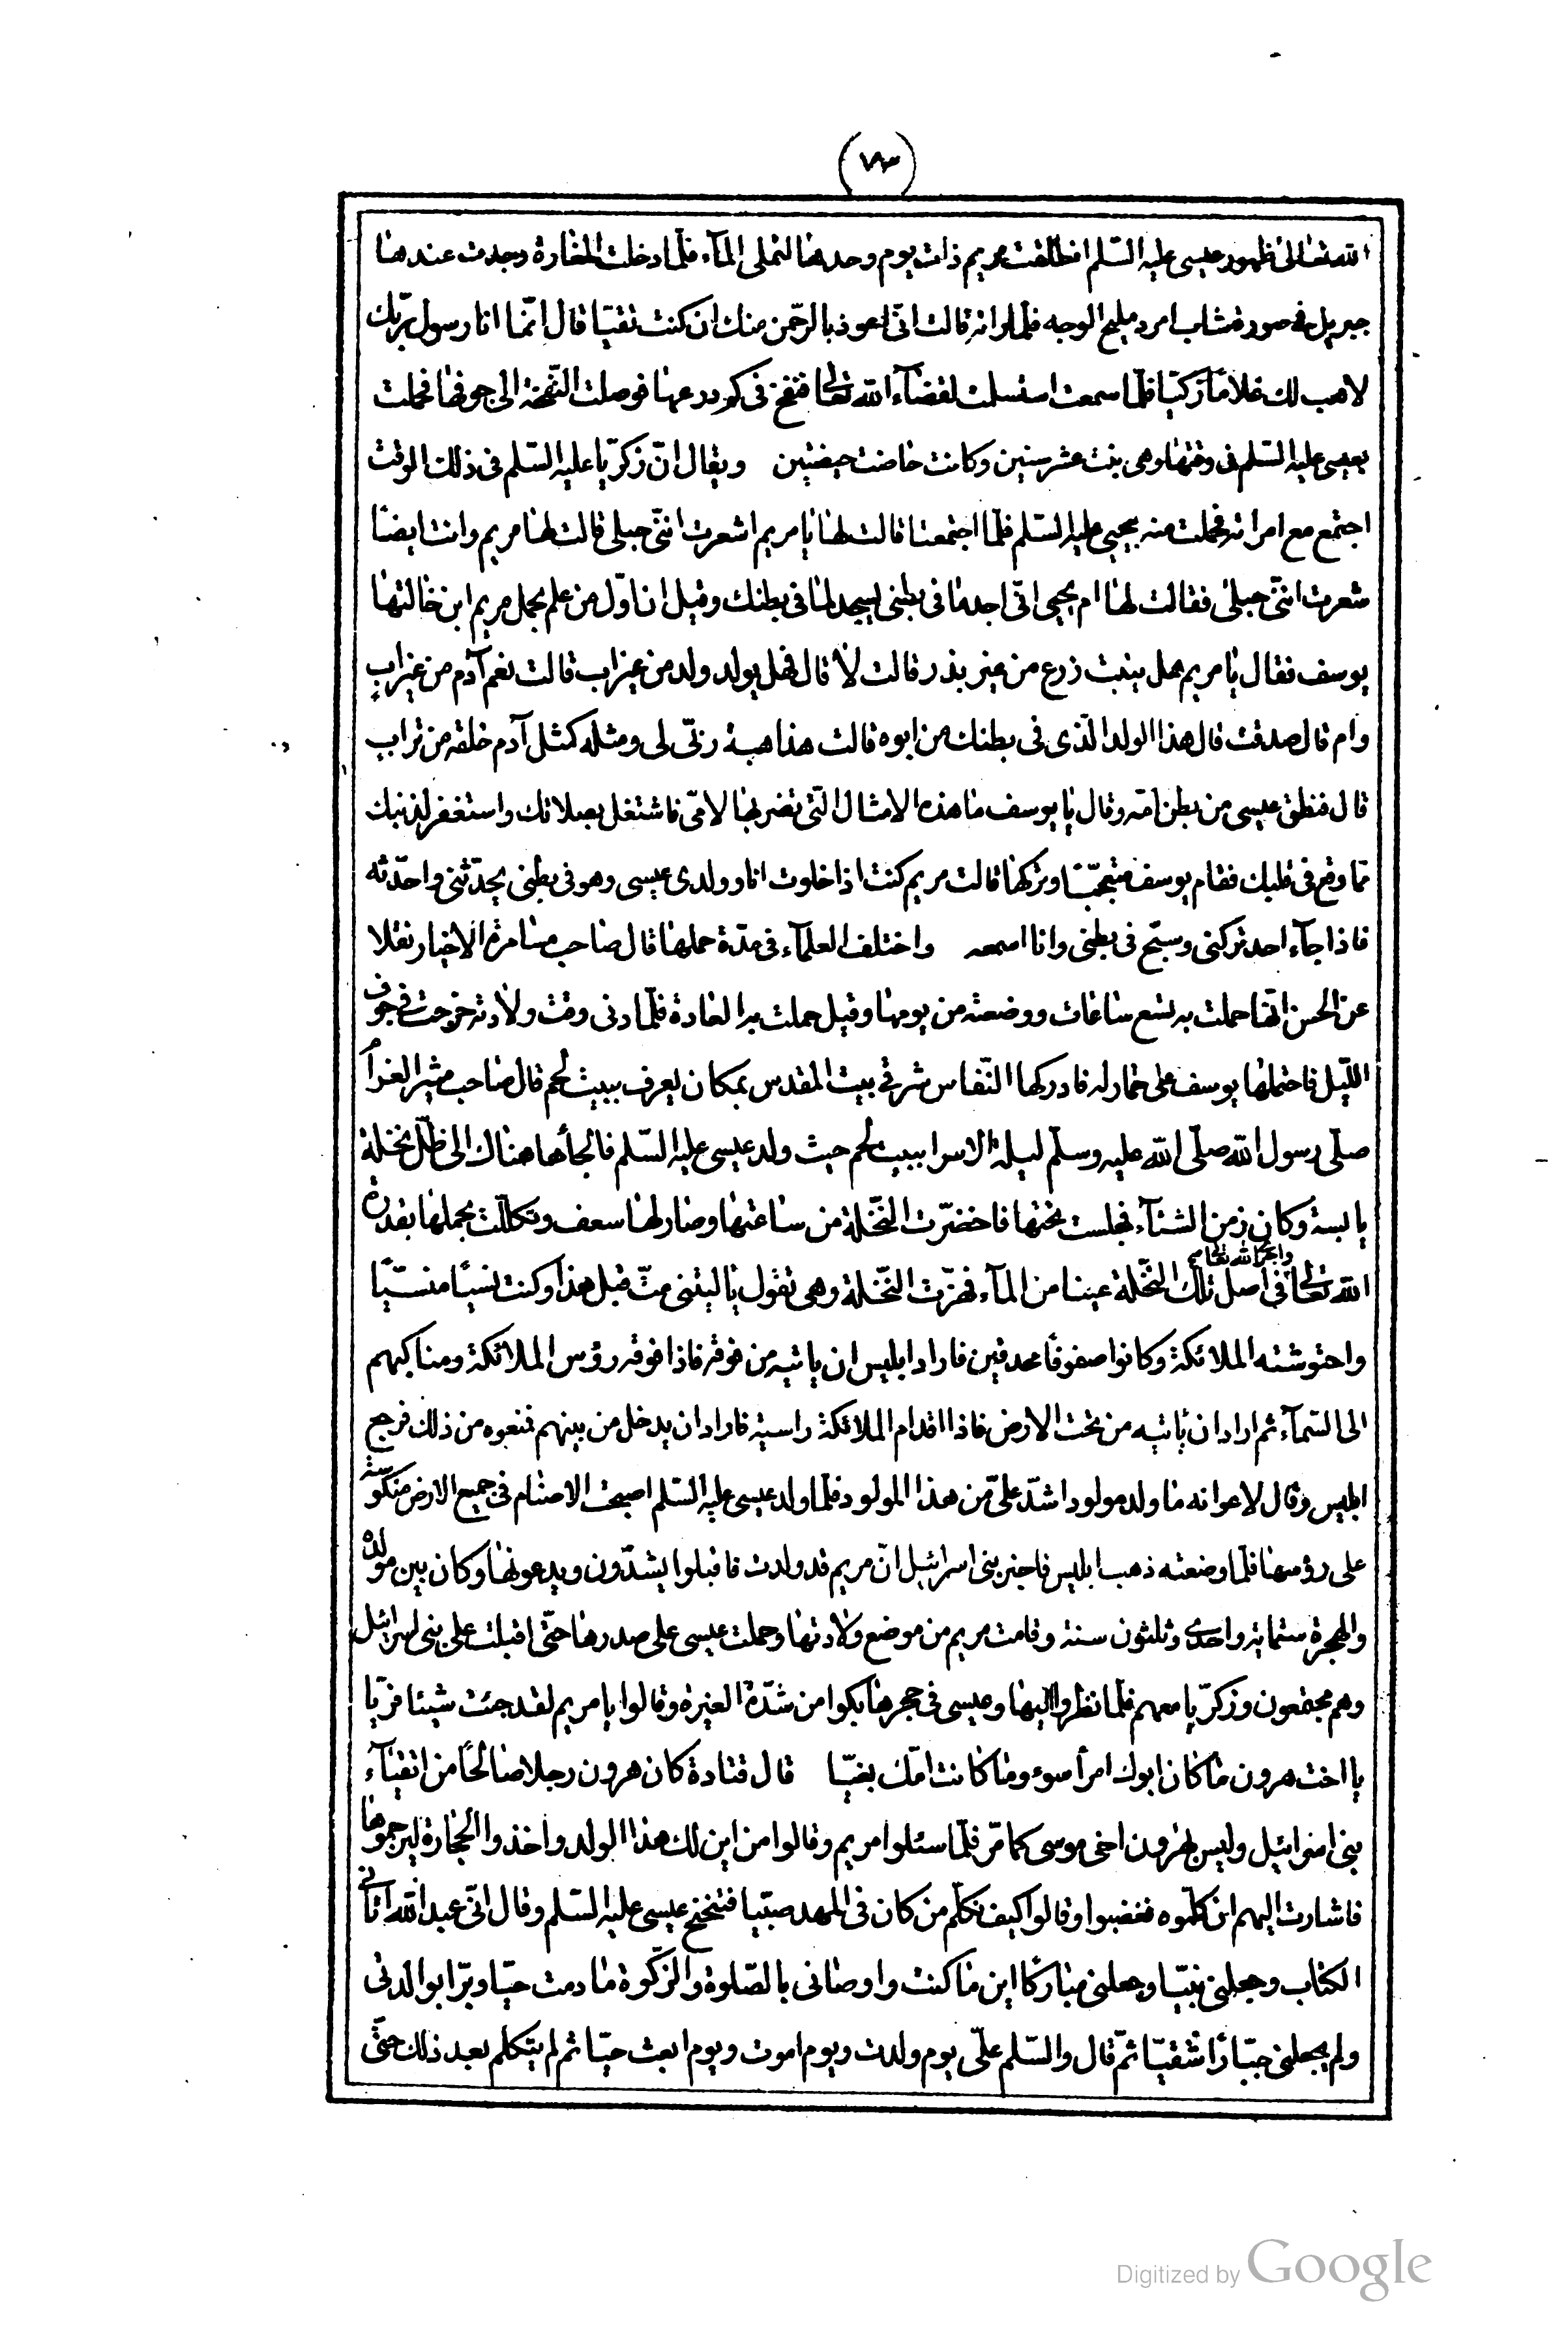 (٧٣)
الله تعالى ظهور عيسى عليه السّلم انطلقت مريم ذات يوم وحدها لتملى المآء فلمّا دخلت المغارة وجدت عندها
جبريل فى صورة شاب امرد مليح الوجه فلمّا راته قالت انّى اعوذ بالرّحمن منك ان كنت تقيّا قال انّما انا رسول ربّك
لاهب لك غلاما زكيّا فلمّا سمعت استسلمت لقضآء الله تعالى فنفخ فى كم درعها فوصلت النّفخة الى جوفها فحملت
بعيسى عليه السّلم فى وقتها وهى بنت عشر سنين وكانت حاضت حيضتين ويقال انّ زكريّا عليه السّلم فى ذلك الوقت
اجتمع مع امراته فحملت منه بيحيى عليه السّلم فلمّا اجتمعتا قالت لها يا مريم اشعرت انّنى حبلى قالت لها مريم وانت ايضا
شعرت انّنى حبلى فقالت لها ام يحيى انّى اجد ما فى بطنى يسجد لما فى بطنك وقيل ان اوّل من علم بحمل مريم ابن خالتها
يوسف فقال يا مريم هل ينبت زرع من غير بذر قالت لا قال فهل يولد ولد من غيراب قالت نعم آدم من غيراب
وام قال صدقت قال هذا الولد الّذى فى بطنك من ابوه قالت هذا هبة ربّى لى ومثله كمثل آدم خلقه من تراب
قال فنطق عيسى من بطن امّه وقال يا يوسف ما هذه الامثال الّتى تضربها لامّى فاشتغل بصلاتك واستغفر لذنبك
ممّا وقع فى قلبك فقام يوسف متعجّبا وتركها قالت مريم كنت اذا خلوت انا وولدى عيسى وهو فى بطنى يحدّثنى واحدّثه
فاذا جآء احد تركنى وسبّح فى بطنى وانا اسمعه واختلف العلمآء فى مدّة حملها قال صاحب مسامرة الاخيار نقلا
عن الحسن انّها حملت به تسع ساعات ووضعته من يومها وقيل حملت به العادة فلمّا دنى وقت ولادته خرجت فى جوف
اللّيل فاحتملها يوسف على حمار له فادركها النّفاس شرقى بيت المقدس بمكان يعرف ببيت لحم قال صاحب مثير الغرام
صلّى رسول الله صلّى الله عليه وسلّم ليلة الاسرا ببيت لحم حيث ولد عيسى عليه السّلم فالجأها هناك الى ظلّ نخلة
يابسة وكان زمن الشتآء فجلست تحتها فاخضرّت النّخلة من ساعتها وصار لها سعف وتكلّلت بحملها بقدرة
الله تعالى واجرى الله تعالى فى اصل تلك النّخلة عينا من المآء فهزّت النّخلة وهى تقول يا ليتنى متّ قبل هذا وكنت نسيًا منسيّا
واحتوشته الملائكة وكانوا صفوفا محدقين فاراد ابليس ان ياتيه من فوقه فاذا فوقه رؤس الملائكة ومناكبهم
الى السّمآء ثم اراد ان ياتيه من تحت الارض فاذا اقدام الملائكة راسية فاراد ان يدخل من بينهم فمنعوه من ذلك فرجع
ابليس وقال لاعوانه ما ولد مولود اشدّ علىّ من هذا المولود فلمّا ولد عيسى عليه السّلم اصبحت الاصنام فى جميع الارض منكوسة
على رؤسها فلمّا وضعته ذهب ابليس فاخبر بنى اسرائيل انّ مريم قد ولدت فاقبلوا يشدّون ويدعونها وكان بين مولده
والهجرة ستماية واحدى وثلثون سنة وقامت مريم من موضع ولادتها وحملت عيسى على صدرها حتّى اقبلت على بنى اسرائيل
وهم مجتمعون وزكريّا معهم فلمّا نظروا اليها وعيسى فى حجرها بكوا من شدّة الغيرة وقالوا يا مريم لقد جئت شيئا فريّا
يا اخت هرون ما كان ابوك امرأ سوء وما كانت امّك بغيّا قال قتادة كان هرون رجلا صالحًا من اتقيآء
بنى اسرائيل وليس بهرون اخى موسى كما مرّ فلمّا سئلوا مريم وقالوا من اين لك هذا الولد واخذوا الحجارة ليرجموها
فاشارت اليهم ان كلّموه فغضبوا وقالوا كيف نكلّم من كان فى المهد صبيّا فتنحنح عيسى عليه السّلم وقال انّى عبد الله آتانى
الكتاب وجعلنى نبيّا وجعلنى مباركًا اين ما كنت واوصانى بالصّلوة والزّكوة ما دمت حيّا وبرّا بوالدتى
ولم يجعلنى جبّارًا شقيّا ثمّ قال والسّلم علىّ يوم ولدت ويوم اموت ويوم ابعث حيّا ثم لم يتكلم بعد ذلك حتّى
Digitized by Google